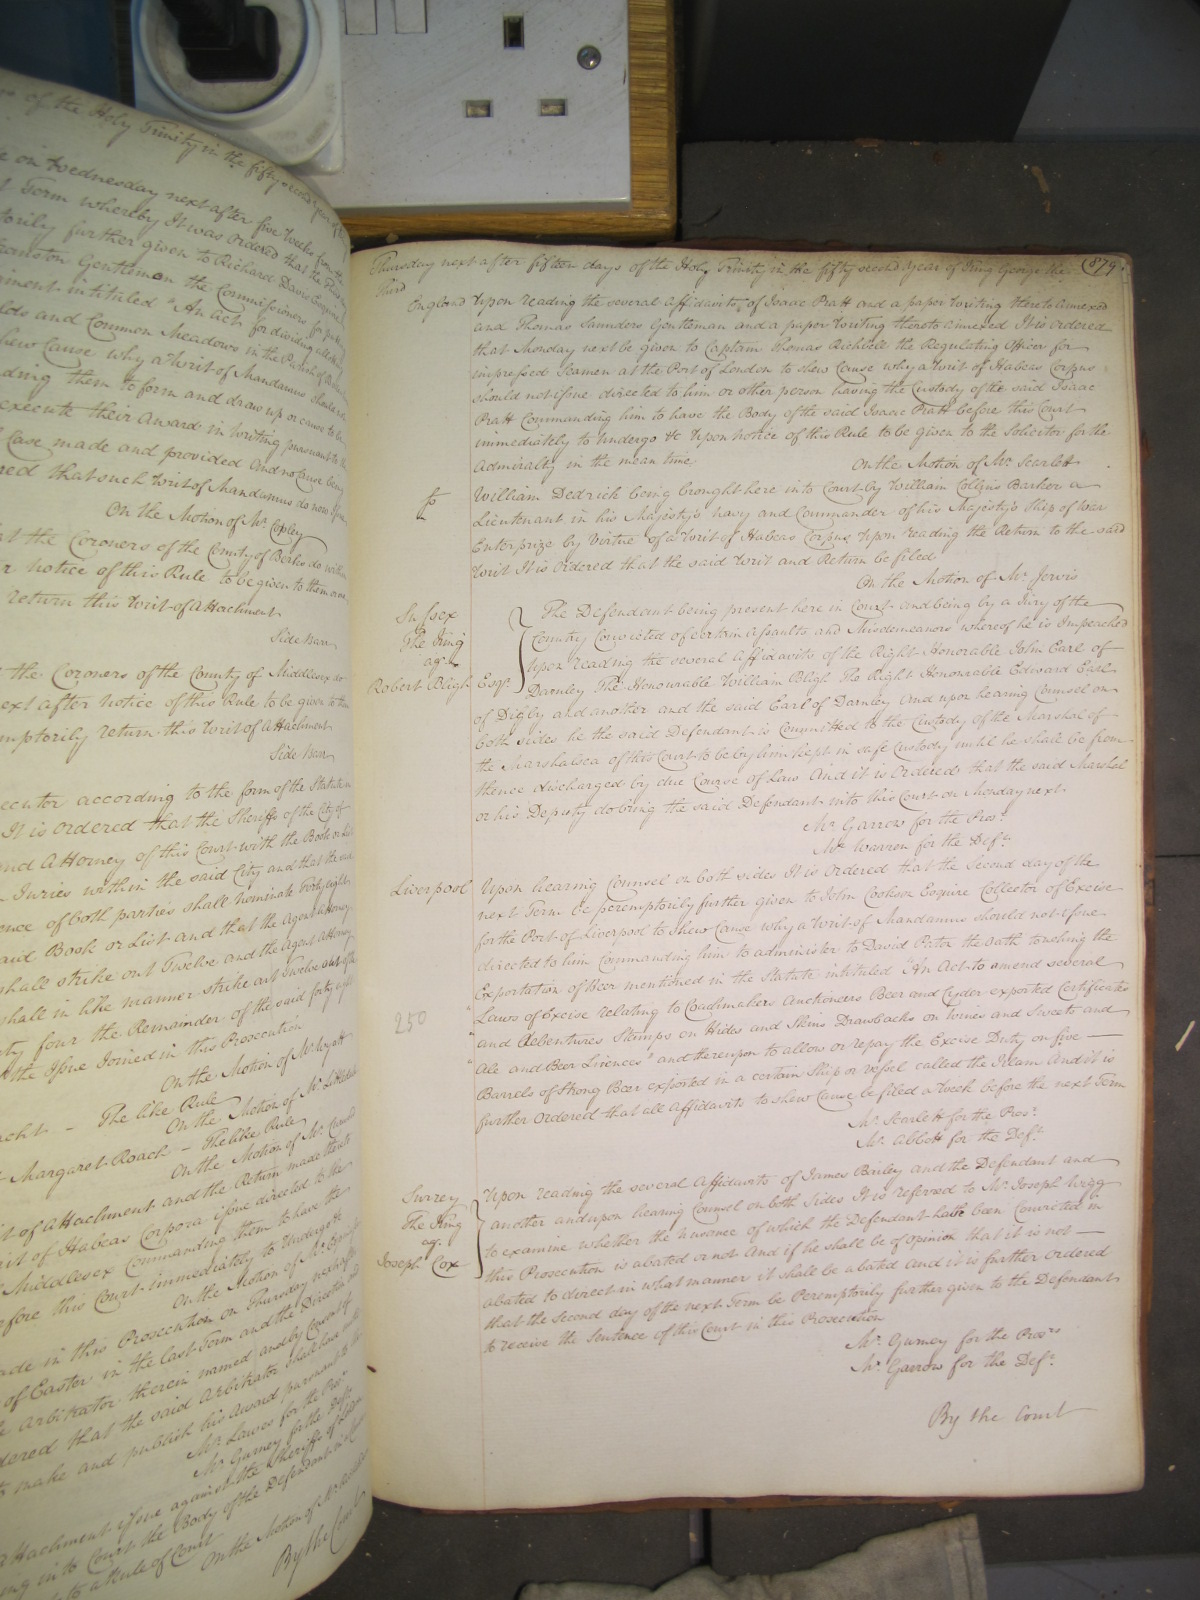 of the Holy Trinity in the fifty second year of
on Wednesday next after five Weeks from the
Term whereby It was ordered that the
further given to Richard Davis Esquire
Gentleman the Commissioners for
intituled "An Act for dividing
and Common Meadows in the Parish of
shew Cause why a Writ of Mandamus should
them to form and draw up or cause to be
execute their Award in Writing pursuant to the
Case made and provided And no Cause being
that such Writ of Mandamus do now Issue
On the Motion of Mr. Copley
the Coroners of the County of Berks do within
notice of this Rule to be given to them
return this Writ of Attachment
Side Bar
the Coroners of the County of Middlesex do
next after Notice of this Rule to be given to them
peremptorily return this Writ of Attachment
Side Bar
according to the form of the Statute
It is Ordered that the Sheriffs of the City of
and Attorney of this Court with the Book or List
Juries within the said City and that the
of both parties shall nominate Forty eight
said Book or List and that the Agent Attorney
shall strike out Twelve and the Agent Attorney
shall in like manner strike out Twelve out of the
four the Remainder of the said forty eight
the Issue Joined in this Prosecution
On the Motion of Mr. Wyatt
The like Rule
On the Motion of Mr.
Margaret Roach – The like Rule
On the Motion of Mr.
of Attachment and the Return made thereto
Writ of Habeas Corpora issue directed to the
Middlesex Commanding them to have the
before this Court immediately to undergo &c
On the Motion of Mr.
made in this Prosecution on Thursday next after
of Easter in the last Term and the Direction
Arbitrator therein named and by Consent of
ordered that the said Arbitrator shall have
to make and publish his Award pursuant to the
Mr. Lawes for the Pros.
Mr. Gurney for the Def.
Attachment issue against the Sheriffs of
bring in to Court the Body of the Defendant
to a Rule of Court
On the Motion of Mr.
By the Court
Thursday next after fifteen days of the Holy Trinity in the fifty second Year of King George the (879)
Third
England Upon reading the several Affidavits, of Isaac Pratt and a paper Writing thereto annexed
and Thomas Saunders Gentleman and a paper Writing thereto annexed It is ordered
that Monday next be given to Captain Thomas Richbell the Regulating Officer for
impressed Seamen at the Port of London to shew Cause why a Writ of Habeas Corpus
should not issue directed to him or other person having the Custody of the said Isaac
Pratt Commanding him to have the Body of the said Isaac Pratt before this Court
immediately to undergo &c Upon notice of this Rule to be given to the Solicitor for the
Admiralty in the mean time
On the Motion of Mr. Scarlett
William Dedrich being brought here into Court by William Collins Barker a
Lieutenant in his Majesty's Navy and Commander of his Majesty's Ship of War
Enterprize by Virtue of a Writ of Habeas Corpus, Upon reading the Return to the said
Writ It is Ordered that the said Writ and Return be filed
On the Motion of Mr. Jervis
Sussex
The King
agt.
Robert Bligh Esqr.
The Defendant being present here in Court and being by a Jury of the
Country Convicted of certain Assaults and Misdemeanors whereof he is Impeached
Upon reading the several Affidavits of the Right Honorable John Earl of
Darnley The Honourable William Bligh The Right Honorable Edward Earl
of Digby and another and the said Earl of Darnley And upon hearing Counsel on
both sides he the said Defendant is Committed to the Custody of the Marshal of
the Marshalsea of this Court to be by him kept in safe Custody until he shall be from
thence discharged by due Course of Law And it is Ordered that the said Marshal
or his Deputy do bring the said Defendant into this Court on Monday next
Mr. Garrow for the Pros.
Mr. Warren for the Deft.
Liverpool Upon hearing Counsel on both sides It is Ordered that the Second day of the
next Term be peremptorily further given to John Cookson Esquire Collector of Excise
for the Port of Liverpool to shew Cause why a Writ of Mandamus should not issue
directed to him Commanding him to administer to David Pater the oath touching the
Exportation of Beer mentioned in the Statute intituled "An Act to amend several
" Laws of Excise relating to Coachmakers Auctioneers Beer and Cyder exported Certificates
250
" and Debentures Stamps on Hides and Skins Drawbacks on Wines and Sweets and
" Ale and Beer Licences" and thereupon to allow or repay the Excise Duty on five
Barrels of Strong Beer exported in a certain Ship or vessel called the Islam And it is
further Ordered that all Affidavits to shew Cause be filed a Week before the next Term
Mr. Scarlett for the Pros.
Mr. Abbott for the Deft.
Surrey
The King
agt.
Joseph Cox
Upon reading the several Affidavits of James Bailey and the Defendant and
another and upon hearing Counsel on both Sides It is referred to Mr. Joseph Wigg
to examine whether the nusance of which the Defendant hath been Convicted in
this Prosecution is abated or not And if he shall be of opinion that it is not
abated to direct in what manner it shall be abated And it is further Ordered
that the Second day of the next Term be Peremptorily further given to the Defendant
to receive the Sentence of this Court in this Prosecution
Mr. Gurney for the Pros.
Mr. Garrow for the Deft.
By the Court